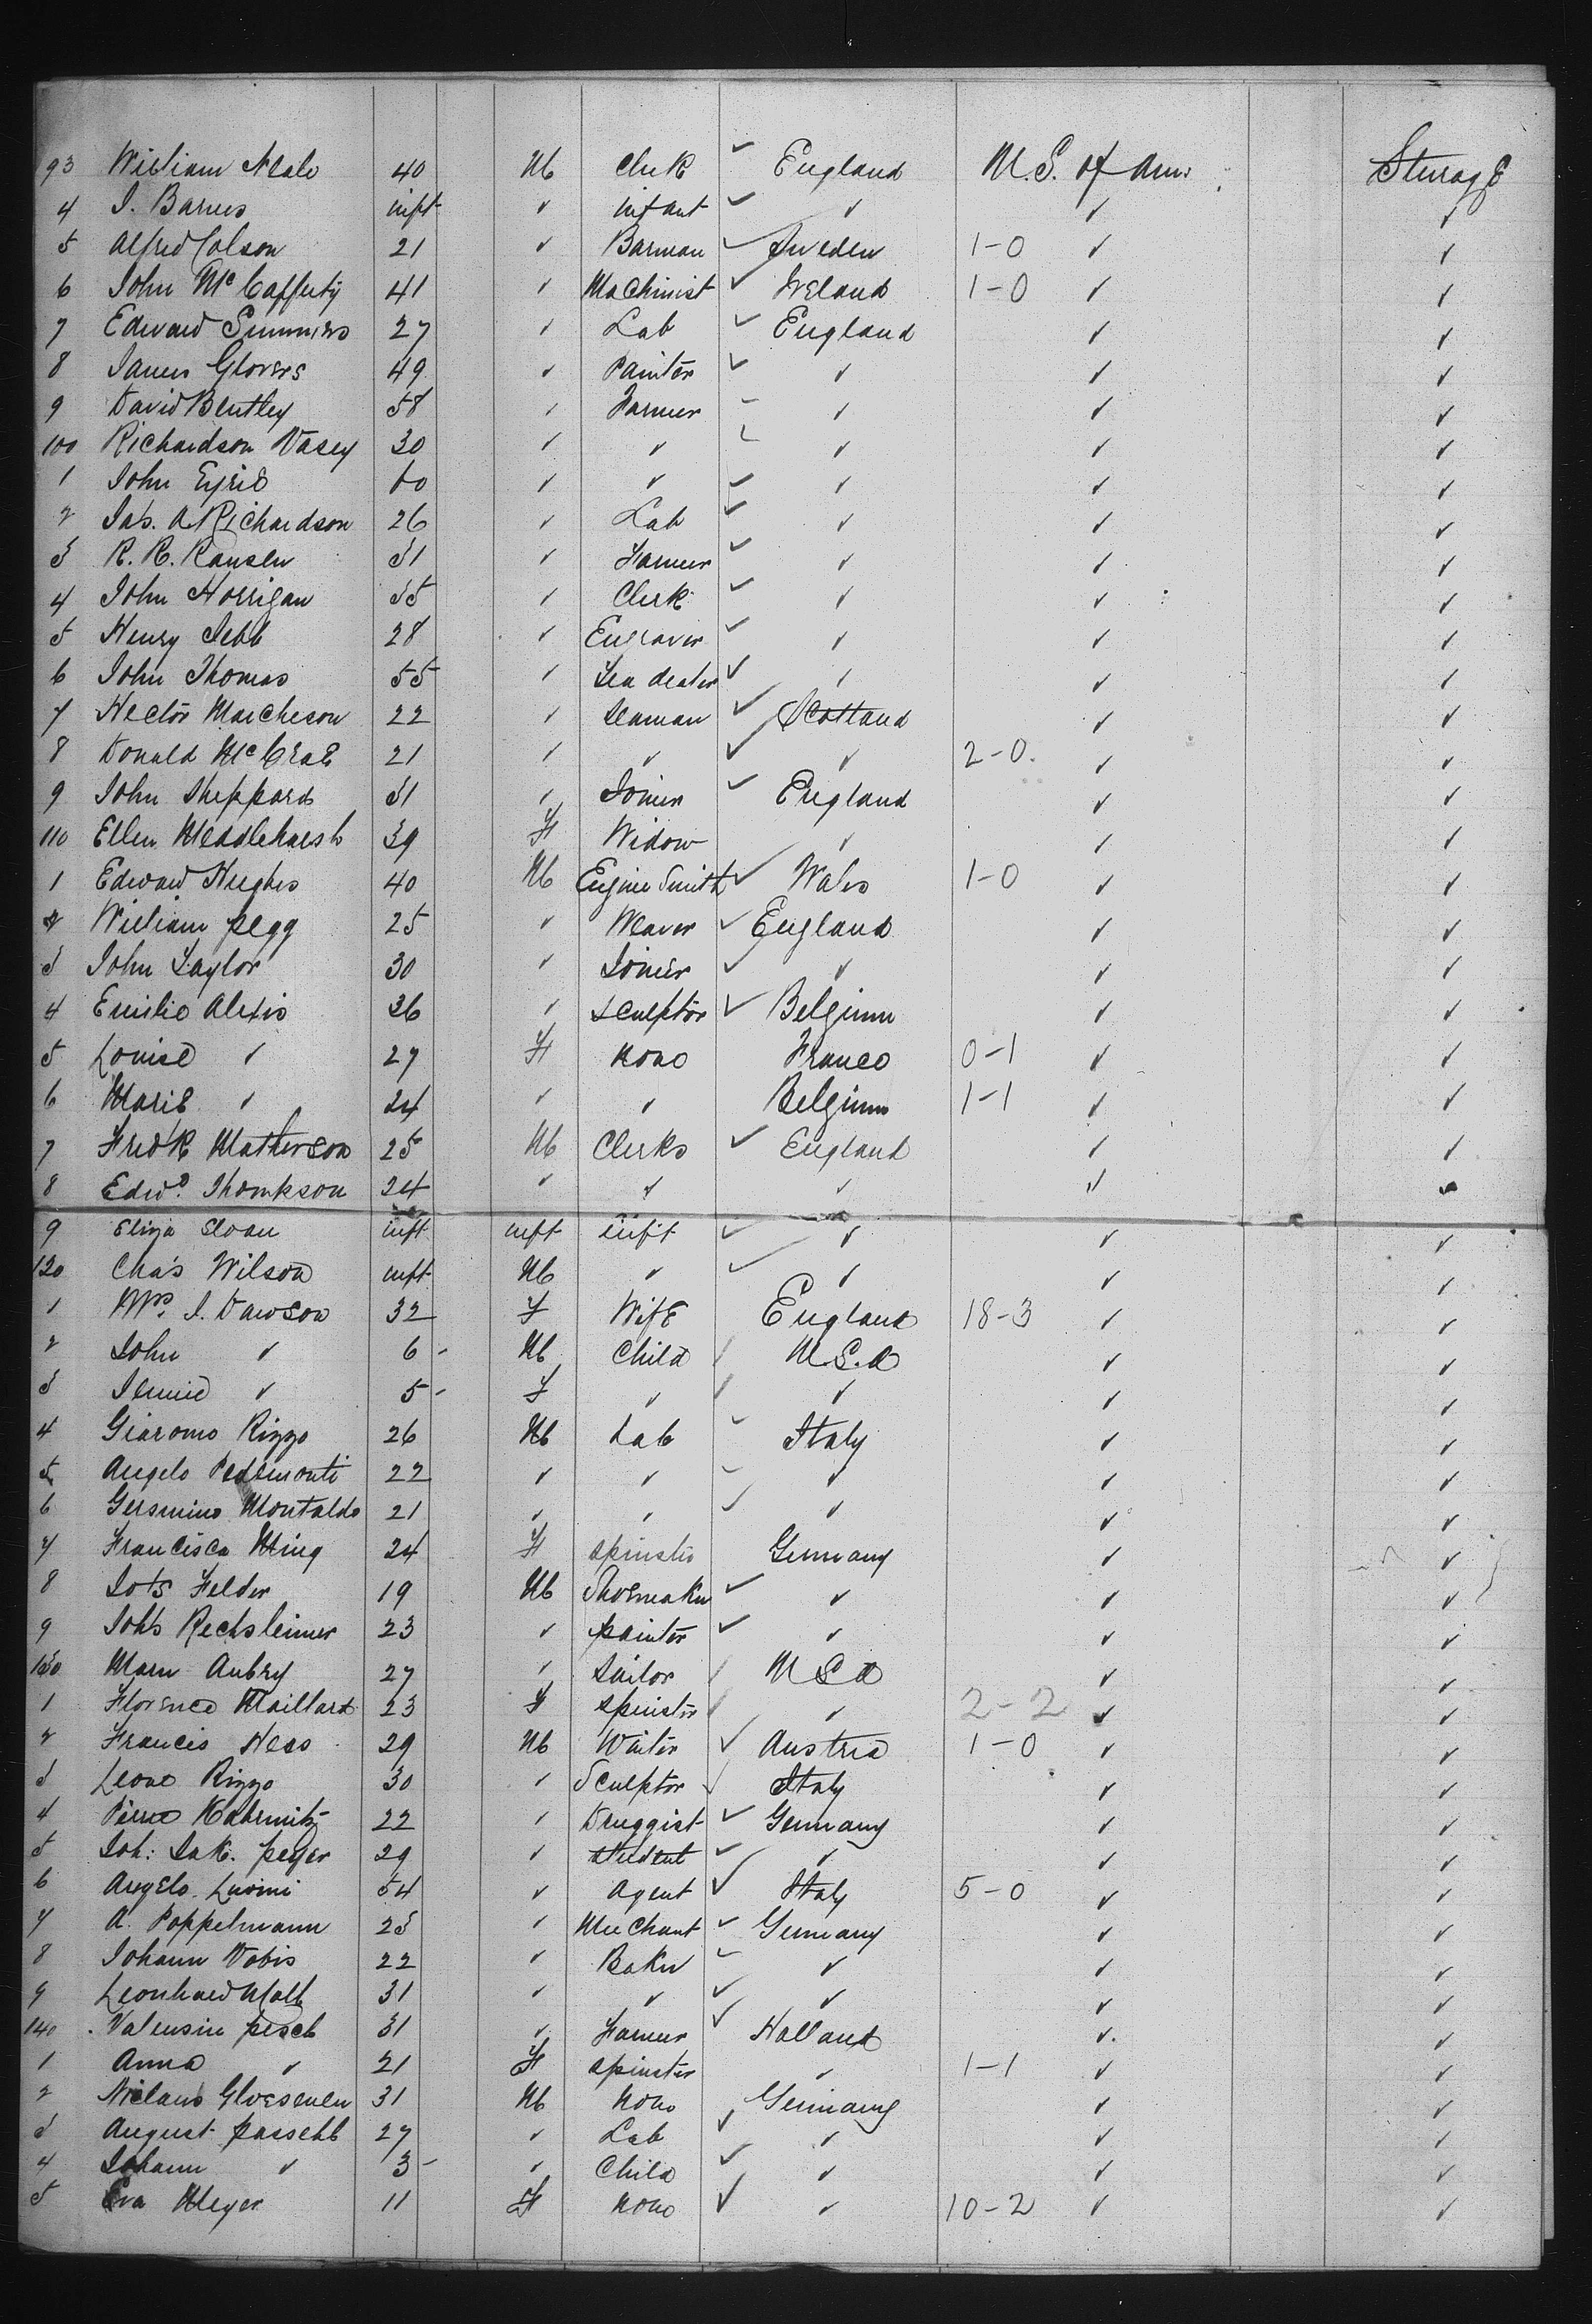 93 William Neale 40 M Clerk ✓ England U.S. of Am. Steerage
4 J. Barnes inft ✓ infant ✓ ✓ ✓ ✓
5 Alfred Colson 21 ✓ Barman ✓ Sweden 1-0 ✓ ✓
6 John McCafferty 41 ✓ Machinist ✓ Ireland 1-0 ✓ ✓
7 Edward Summers 27 ✓ Lab ✓ England ✓ ✓
8 James Glovers 49 ✓ Painter ✓ ✓ ✓ ✓
9 David Bentley 58 ✓ Farmer ✓ ✓ ✓
100 Richardson Vasey 30 ✓ ✓ ✓ ✓ ✓ ✓
1 John Eyrie 60 ✓ ✓ ✓ ✓ ✓ ✓
2 Jas. A Richardson 26 ✓ Lab ✓ ✓ ✓ ✓
3 R. R. Ransen 31 ✓ Farmer ✓ ✓ ✓ ✓
4 John Horrigan 35 ✓ Clerk ✓ ✓ ✓ ✓
5 Henry Jebb 28 ✓ Engraver ✓ ✓ ✓ ✓
6 John Thomas 55 ✓ Tea dealer ✓ ✓ ✓ ✓
7 Hector Murcheson 22 ✓ Seaman ✓ Scotland ✓ ✓
8 Donald McCrae 21 ✓ ✓ ✓ ✓ 2-0. ✓ ✓
9 John Sheppard 31 ✓ Joiner ✓ England ✓ ✓
110 Ellen 39 F Widow ✓ ✓ ✓
1 Edward Hughes 40 M Engine Smith ✓ Wales 1-0 ✓ ✓
2 William Pegg 25 ✓ Weaver ✓ England ✓ ✓
3 John Taylor 30 ✓ Joiner ✓ ✓ ✓ ✓
4 Emilie Alexis 36 ✓ Sculptor ✓ Belgium ✓ ✓
5 Louise ✓ 27 F None France 0-1 ✓ ✓
6 Marie ✓ 24 ✓ ✓ Belgium 1-1 ✓ ✓
7 Fredk Matherson 25 M Clerks ✓ England ✓ ✓
8 Edwd. Thompson 24 ✓ ✓ ✓ ✓ ✓
9 Eliza Sloan inft inft inft ✓ ✓ ✓ ✓
120 Chas Wilson inft M ✓ ✓ ✓ ✓ ✓
1 Mrs. J. Dawson 32 F Wife England 18-3 ✓ ✓
2 John ✓ 6- M Child ✓ U.S.A ✓ ✓
3 Jennie ✓ 5- F ✓ ✓ ✓ ✓ ✓
4 Giaromo Rizzo 26 M Lab ✓ Italy ✓ ✓
5 Angelo Pedemonti 22 ✓ ✓ ✓ ✓ ✓ ✓
6 Gersmino Montaldo 21 ✓ ✓ ✓ ✓ ✓ ✓
7 Francisca Ming 24 F Spinster Germany ✓ ✓
8 Felder 19 M Shoemaker ✓ ✓ ✓ ✓
9 Johs Rechsleimer 23 ✓ painter ✓ ✓ ✓ ✓
130 Aubry 27 ✓ Sailor ✓ U S A ✓ ✓
1 Florence Maillard 23 F Spinster ✓ ✓ 2-2 ✓ ✓
2 Francis Hess 29 M Waiter ✓ Austria 1-0 ✓ ✓
3 Leone Rizzo 30 ✓ Sculptor ✓ Italy ✓ ✓
4 Pierre 22 ✓ Druggist ✓ Germany ✓ ✓
5 Joh: Jak. Peyer 29 ✓ student ✓ ✓ ✓ ✓
6 Angelo Luomi 54 ✓ Agent ✓ Italy 5-0 ✓ ✓
7 A. Poppelmann 23 ✓ Merchant ✓ Germany ✓ ✓
8 Johann Vobis 22 ✓ Baker ✓ ✓ ✓ ✓
9 Leonhard 31 ✓ ✓ ✓ ✓ ✓ ✓
140 Valensin Pesch 31 ✓ Farmer ✓ Holland ✓ ✓
1 Anna ✓ 21 F Spinster ✓ 1-1 ✓ ✓
2 Niclaus Gloesenen 31 M None Germany ✓ ✓
3 August Passehl 27 ✓ Lab ✓ ✓ ✓ ✓
4 Johann ✓ 3- ✓ Child ✓ ✓ ✓ ✓
5 Eva Meyer 11 F None ✓ ✓ 10-2 ✓ ✓